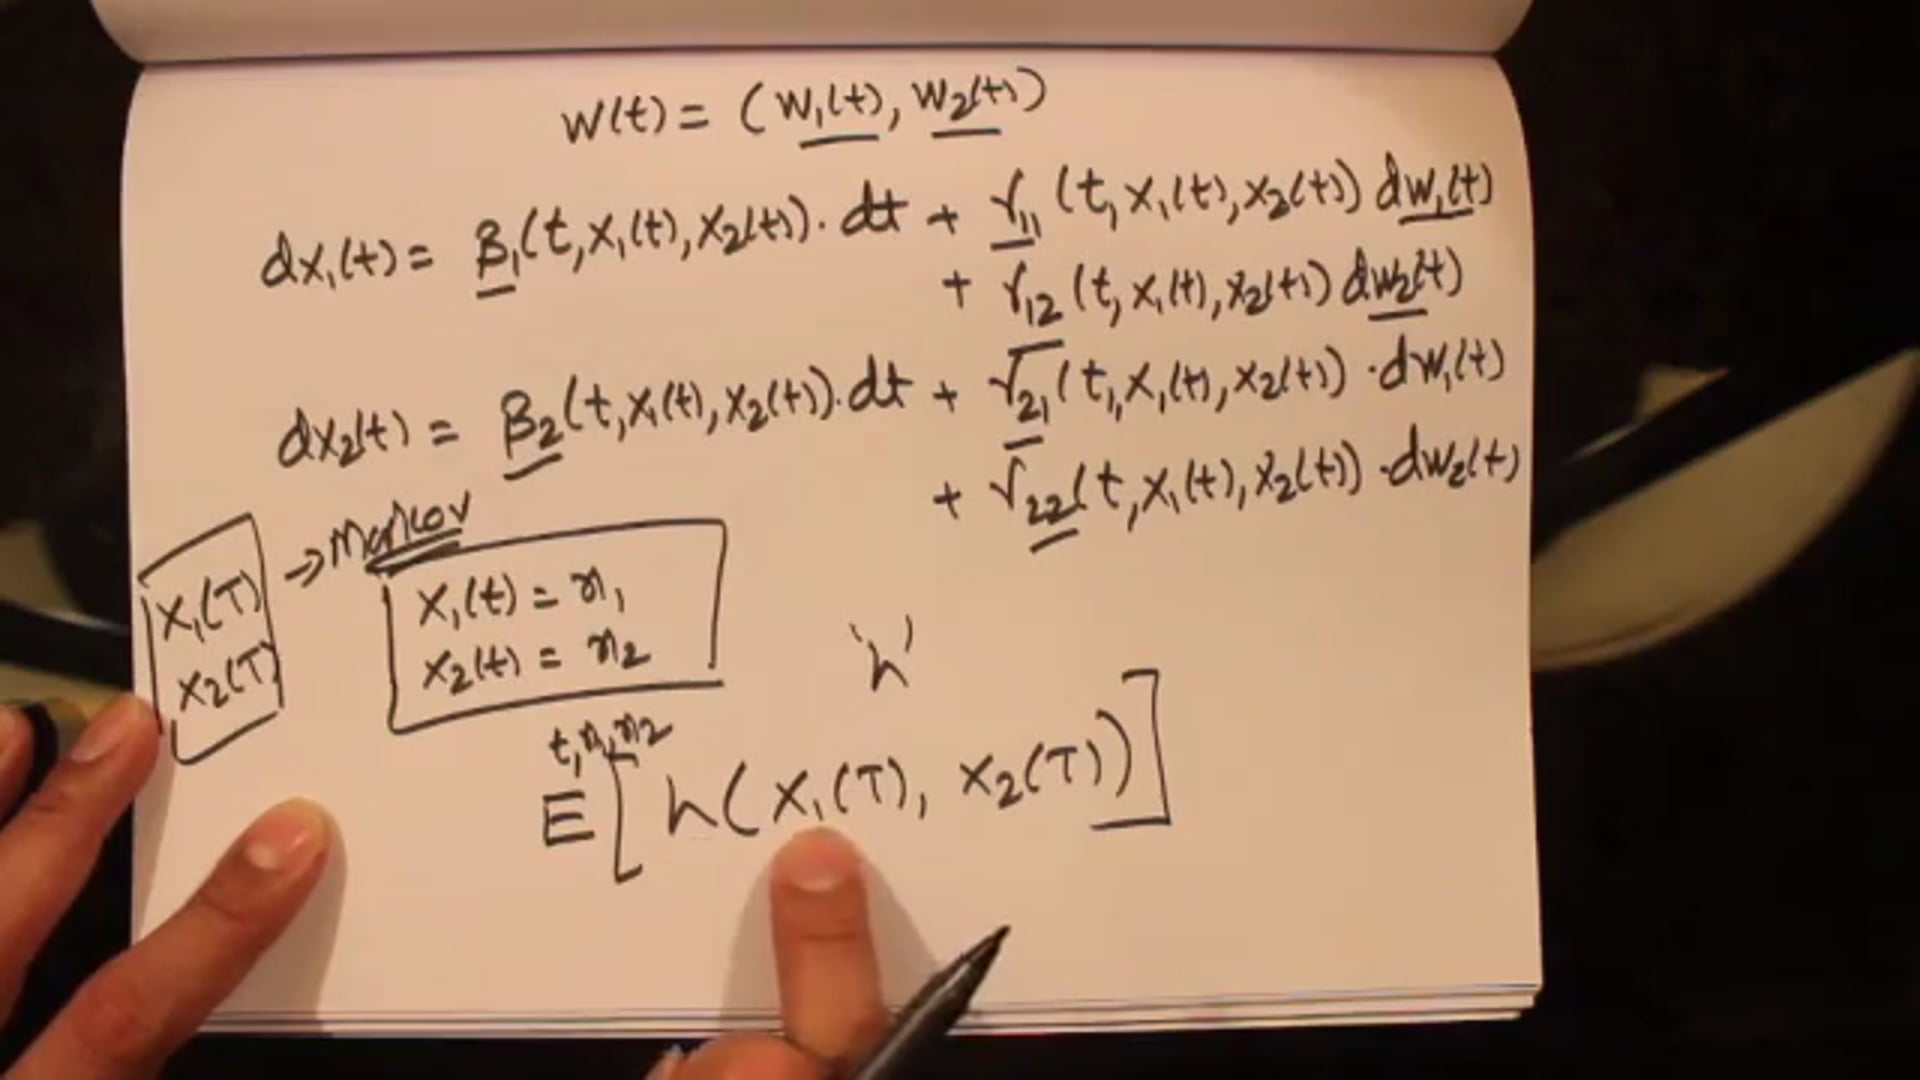 W(t) = (W₁(t), W₂(t))
dX₁(t) = β₁(t, X₁(t), X₂(t)). dt + γ₁₁ (t, X₁(t), X₂(t)) dW₁(t)
+ γ₁₂ (t, X₁(t), X₂(t)) dW₂(t)
dX₂(t) = β₂(t, X₁(t), X₂(t)). dt + γ₂₁(t, X₁(t), X₂(t)) · dW₁(t)
+ γ₂₂(t, X₁(t), X₂(t)) · dW₂(t)
X₁(T)
X₂(T)
→ Markov
X₁(t) = x₁
X₂(t) = x₂
'h'
t, x₁, x₂
E[h(X₁(T), X₂(T))]